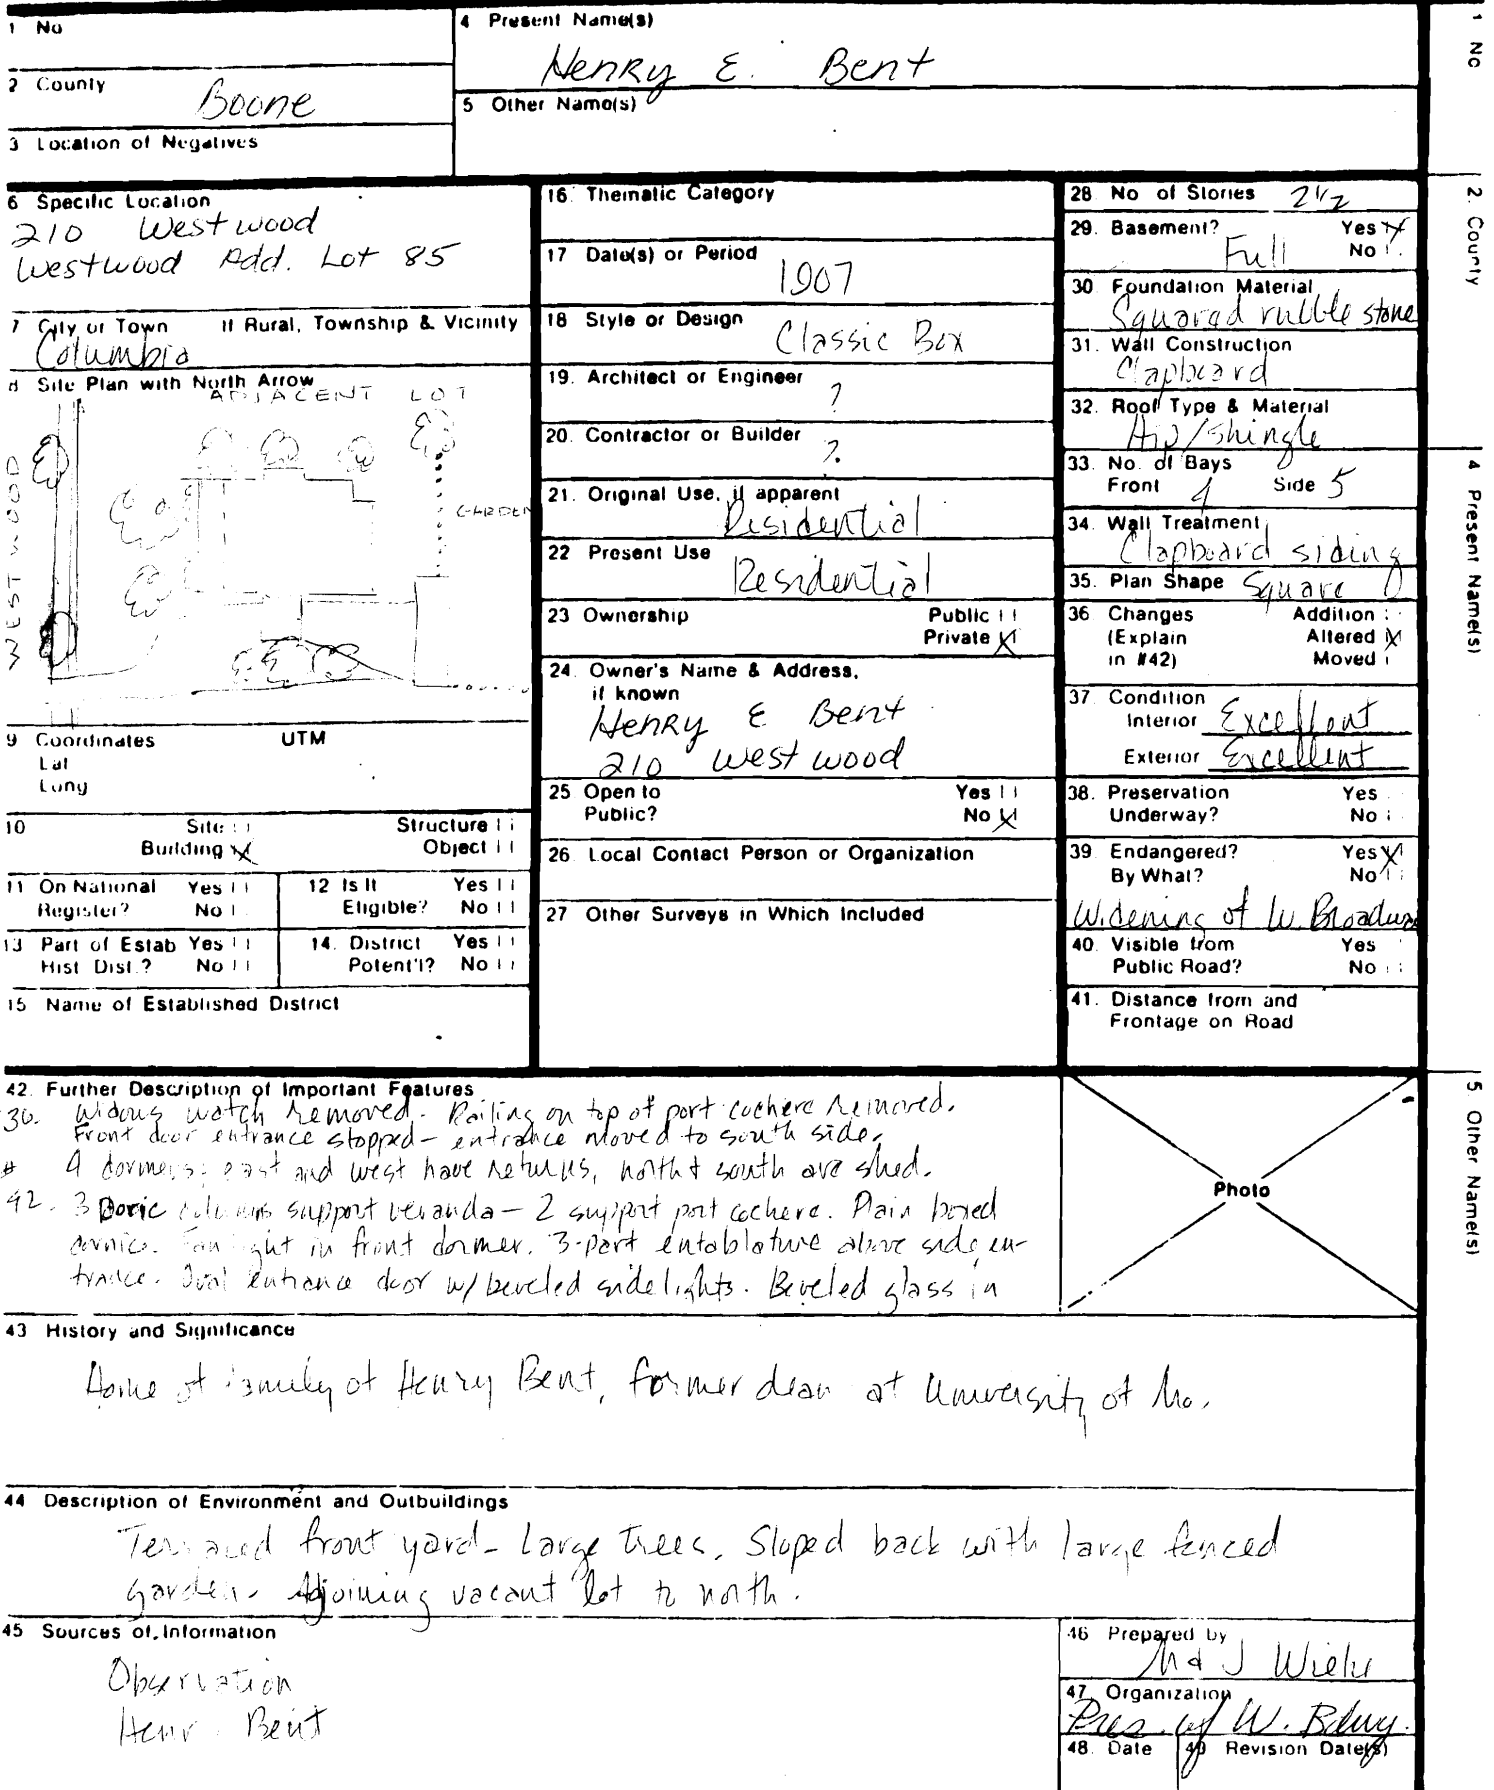 1 No
2 County
Boone
3 Location of Negatives
4 Present Name(s)
Henry E. Bent
5 Other Name(s)
6 Specific Location
210 Westwood
Westwood Add. Lot 85
7 City or Town If Rural, Township & Vicinity
Columbia
8 Site Plan with North Arrow
ADJACENT LOT
WESTWOOD
GARDEN
9 Coordinates UTM
Lat
Long
10 Site Structure
Building X Object
11 On National Yes
Register? No
12 Is It Yes
Eligible? No
13 Part of Estab Yes
Hist Dist.? No
14. District Yes
Potent'l? No
15 Name of Established District
16. Thematic Category
17 Date(s) or Period
1907
18 Style or Design
Classic Box
19. Architect or Engineer
?
20. Contractor or Builder
?
21. Original Use, if apparent
Residential
22 Present Use
Residential
23 Ownership Public
Private X
24. Owner's Name & Address,
if known
Henry E Bent
210 Westwood
25 Open to Yes
Public? No X
26. Local Contact Person or Organization
27 Other Surveys in Which Included
28. No of Stories 2 1/2
29. Basement? Yes X
Full No
30 Foundation Material
Squared rubble stone
31. Wall Construction
Clapboard
32. Roof Type & Material
Hip/Shingle
33. No. of Bays
Front 4 Side 5
34. Wall Treatment
Clapboard siding
35. Plan Shape Square
36 Changes Addition
(Explain Altered X
in #42) Moved
37. Condition
Interior Excellent
Exterior Excellent
38. Preservation Yes
Underway? No
39. Endangered? Yes X
By What? No
Widening of W. Broadway
40. Visible from Yes
Public Road? No
41. Distance from and
Frontage on Road
42. Further Description of Important Features
36. Widows watch removed. Railing on top of port cochere removed.
Front door entrance stopped - entrance moved to south side.
# 4 dormers; east and west have returns, north & south are shed.
42. 3 Doric columns support veranda - 2 support port cochere. Plain boxed
cornice. Fan light in front dormer. 3-part entablature above side en-
trance. Oval entrance door w/ beveled sidelights. Beveled glass in
Photo
43 History and Significance
Home of family of Henry Bent, former dean at University of Mo.
44 Description of Environment and Outbuildings
Terraced front yard - Large trees. Sloped back with large fenced
garden. Adjoining vacant lot to north.
45 Sources of Information
Observation
Henry Bent
46 Prepared by
J
47 Organization
Pres. of W. Bdwy.
48. Date 49 Revision Date(s)
1 No
2. County
4 Present Name(s)
5 Other Name(s)